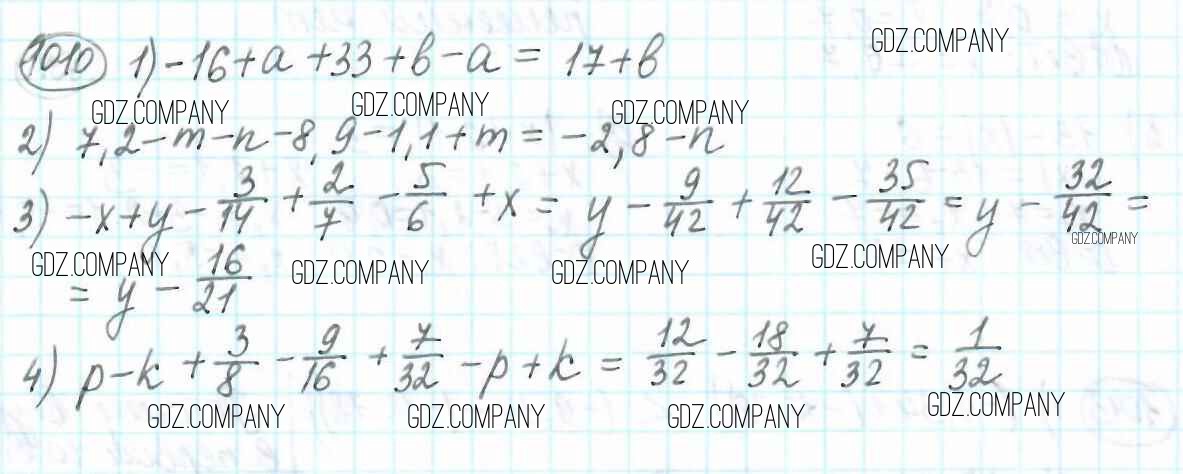 GDZ.COMPANY
1010 1) -16+a+33+b-a = 17+b
GDZ.COMPANY GDZ.COMPANY GDZ.COMPANY
2) 7,2-m-n-8,9-1,1+m = -2,8-n
3) -x+y-3/14+2/7-5/6+x = y-9/42+12/42-35/42 = y-32/42 =
GDZ.COMPANY GDZ.COMPANY GDZ.COMPANY GDZ.COMPANY GDZ.COMPANY
= y-16/21
4) p-k+3/8-9/16+7/32-p+k = 12/32-18/32+7/32 = 1/32
GDZ.COMPANY GDZ.COMPANY GDZ.COMPANY GDZ.COMPANY